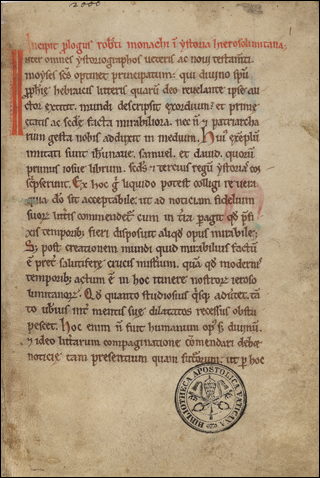 2000
Incipit plogus robti monachi i ystoria hierosolimitana;
Inter omnes ystoriographos veteris ac novi testamti
moyses scs optinet principatum: qui divino spu
pphie hebraicis litteris quaru deo revelante ipse auc
tor extitit. mundi descripsit exordium; et prime
etatis ac scde facta mirabiliora. nec n et patriarcha
rum gesta nobis adduxit in medium. Hui exeplu
imitati sunt ihu nave. samuel. et david. quoru
primus iosue librum. scds et tercius regu ystorias con
scripserunt. Ex hoc g liquido potest colligi re vera
qua do sit acceptabile. ut ad noticiam fidelium
suor littis commendet cum in tra pagit qd pfi
xis temporib; fieri disposuit aliqd opus mirabile;
S; post creationem mundi quid mirabilius factu
e pret salutifere crucis misterium. qua qd modernis
temporib; actum e in hoc itinere nostror ieroso
limitanor. Qd quanto studiosius qsq; advertet. ta
to ubius int mentis sue dilatatos recessus obstu
pescet. Hoc enim n fuit humanum op; s; divinu.
et ideo littarum compaginatione comendari debet
noticie tam presentium quam futuror. ut p hoc
BIBLIOTHECA APOSTOLICA VATICANA